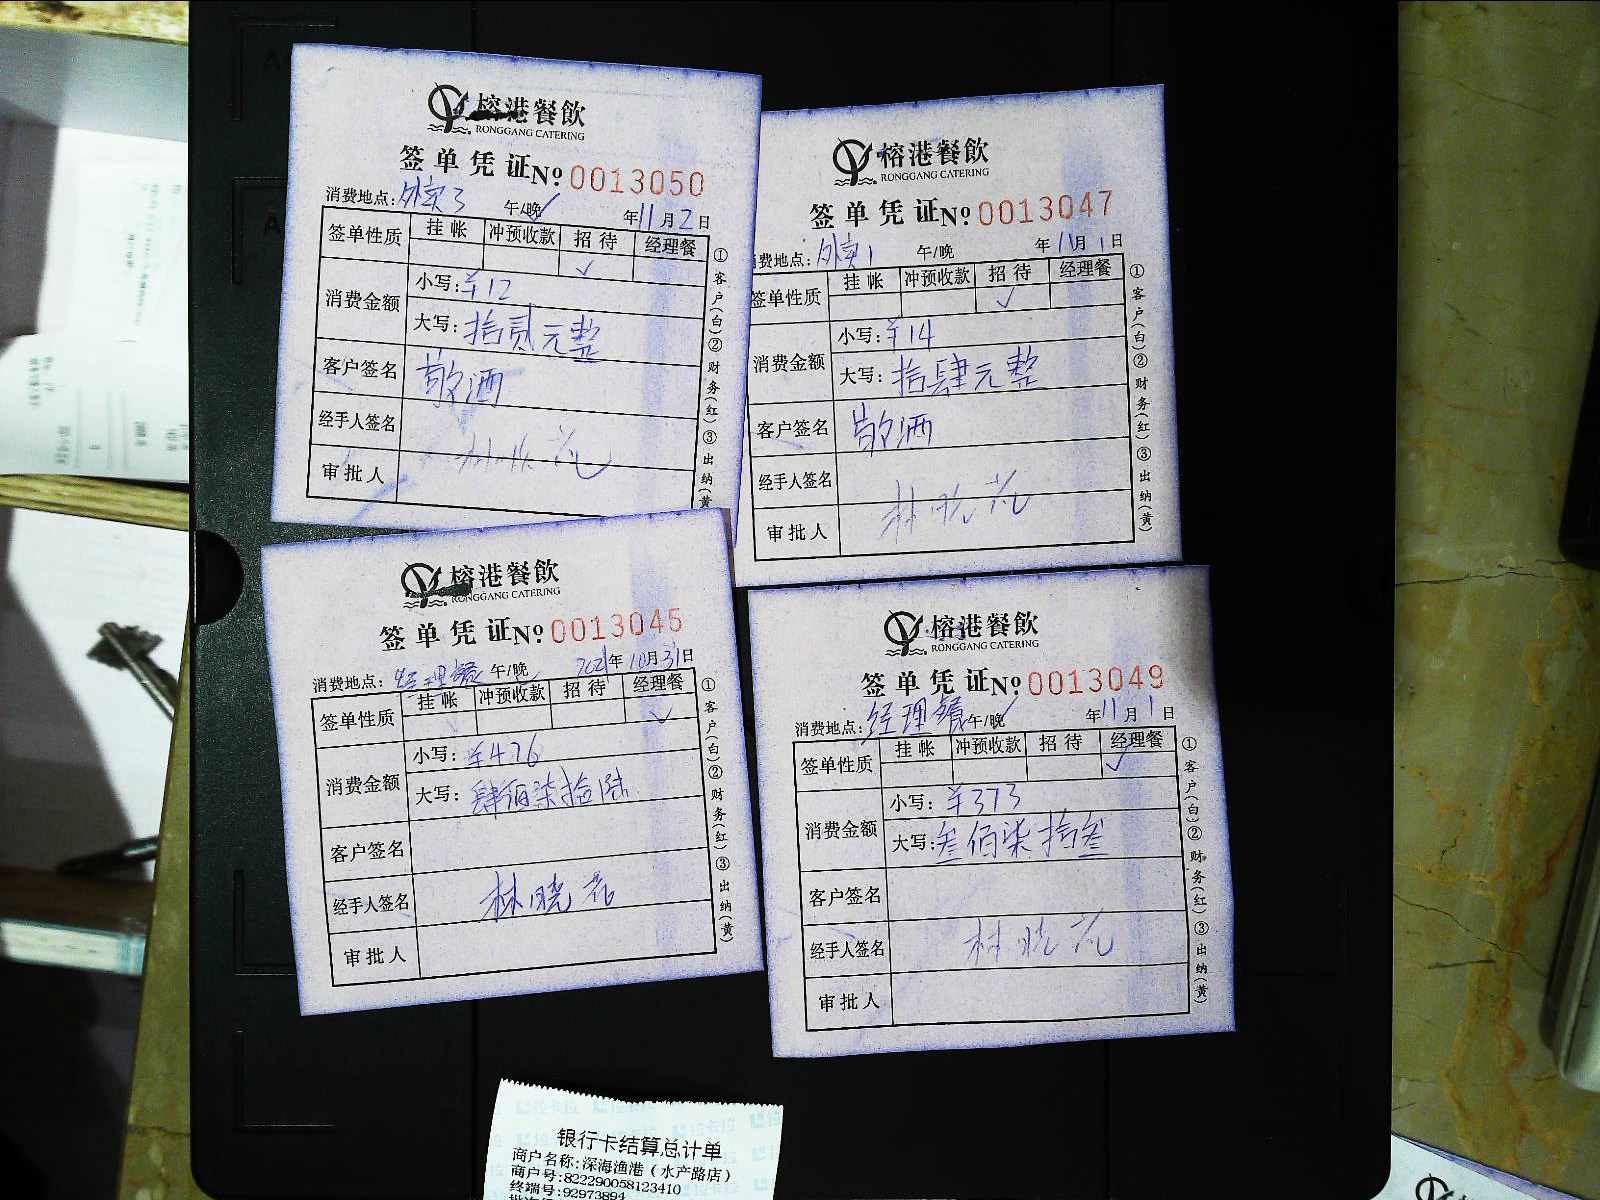 榕港餐飲
RONGGANG CATERING
签单凭证 No 0013050
消费地点: 外卖3 午/晚 年 11月 2日
签单性质 挂帐 冲预收款 招待 经理餐
✓
消费金额 小写: ¥12
大写: 拾贰元整
客户签名 敬酒
经手人签名
审批人
①客户(白)②财务(红)③出纳(黄
榕港餐飲
RONGGANG CATERING
签单凭证 No 0013047
费地点: 外卖1 午/晚 年 11月 1日
签单性质 挂帐 冲预收款 招待 经理餐
✓
消费金额 小写: ¥14
大写: 拾肆元整
客户签名 敬酒
经手人签名 林晓花
审批人
①客户(白)②财务(红)③出纳(黄)
榕港餐飲
RONGGANG CATERING
签单凭证 No 0013045
消费地点: 经理餐 午/晚 2021年 10月 31日
签单性质 挂帐 冲预收款 招待 经理餐
✓
消费金额 小写: ¥476
大写: 肆佰柒拾陆
客户签名
经手人签名 林晓花
审批人
①客户(白)②财务(红)③出纳(黄)
榕港餐飲
RONGGANG CATERING
签单凭证 No 0013049
消费地点: 经理餐 午/晚 年 11月 1日
签单性质 挂帐 冲预收款 招待 经理餐
✓
消费金额 小写: ¥373
大写: 叁佰柒拾叁
客户签名
经手人签名 林晓花
审批人
①客户(白)②财务(红)③出纳(黄)
银行卡结算总计单
商户名称:深海渔港(水产路店)
商户号:822290058123410
终端号:92973894